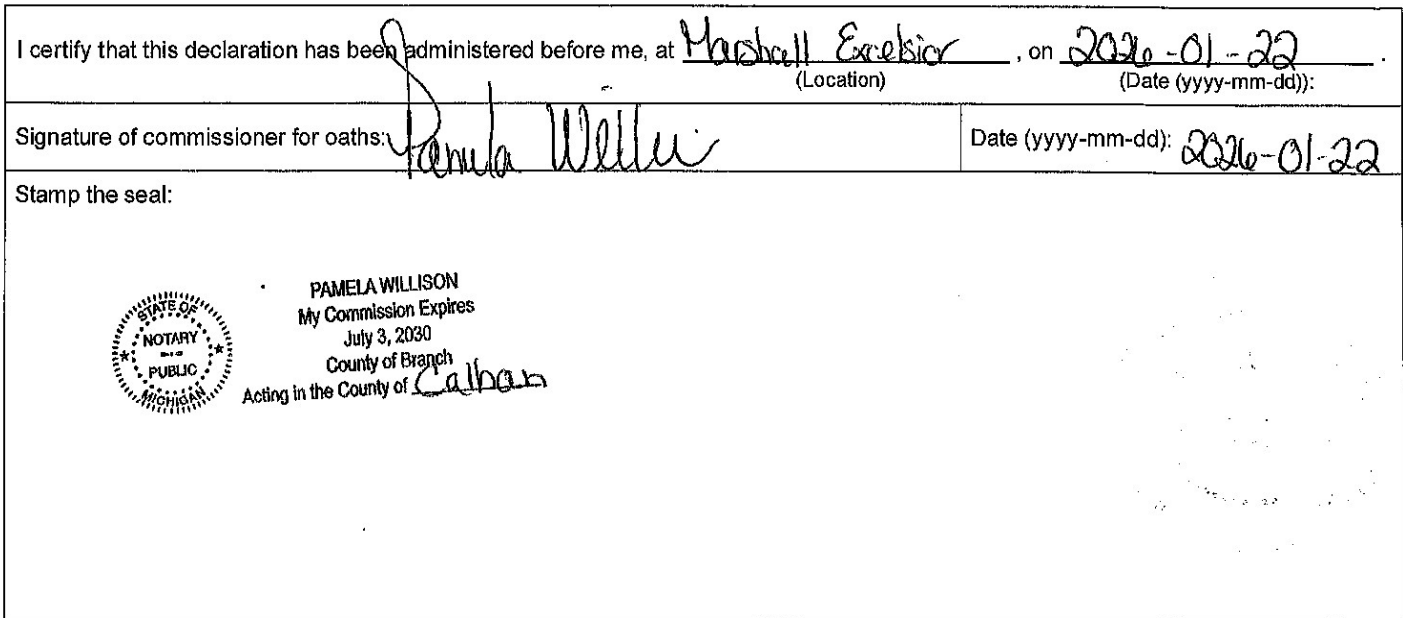 I certify that this declaration has been administered before me, at Marshall Excelsior, on 2026-01-22.
(Location) (Date (yyyy-mm-dd)):
Signature of commissioner for oaths: Pamela Willison Date (yyyy-mm-dd): 2026-01-22
Stamp the seal:
STATE OF
NOTARY
PUBLIC
MICHIGAN
PAMELA WILLISON
My Commission Expires
July 3, 2030
County of Branch
Acting in the County of Calhoun